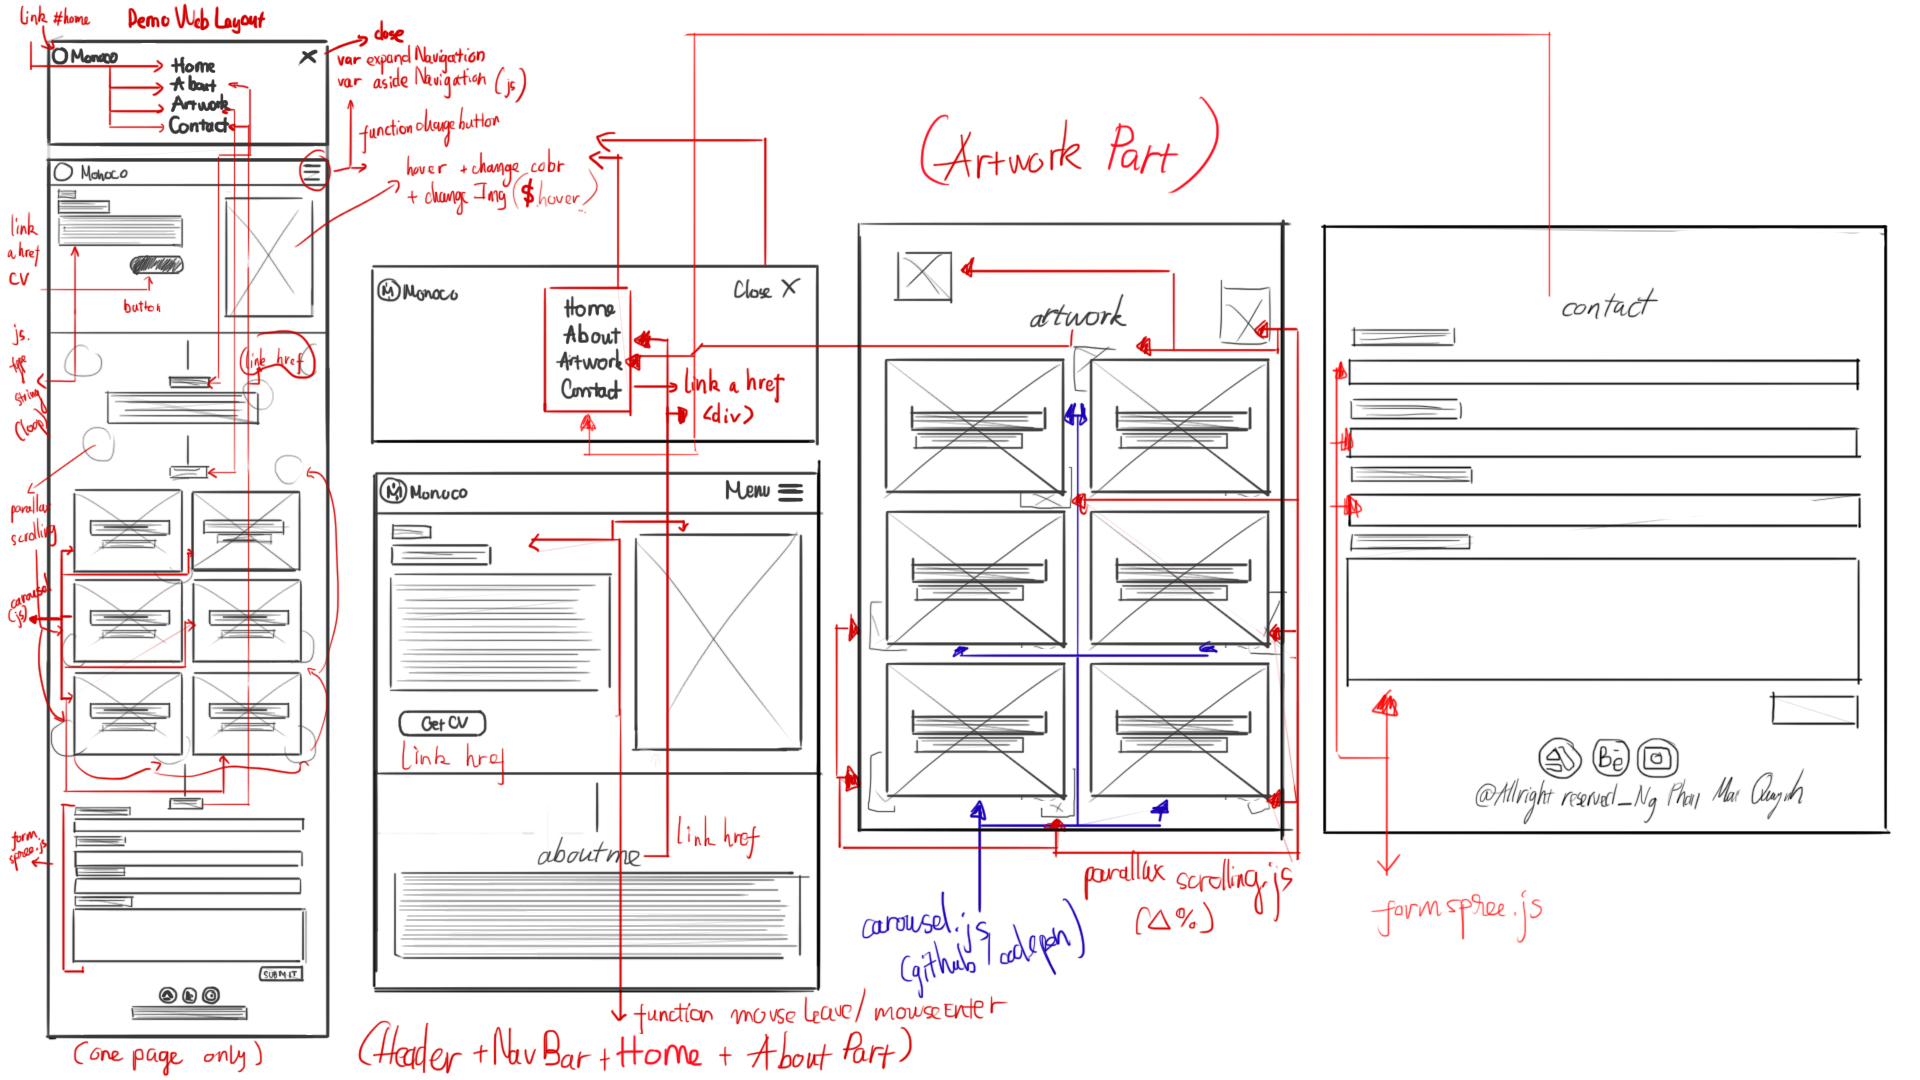 link #home
Demo Web Layout
Monoco
Home
About
Artwork
Contact
close
var expand Navigation
var aside Navigation (js)
function change button
Monoco
hover + change color
+ change Img ($hover)
link
a href
CV
button
js.
type
string
(loop)
link href
parallax
scrolling
carousel
(js)
form.
spree.js
SUBMIT
(one page only)
Monoco
Close X
Home
About
Artwork
Contact
link a href
<div>
Monoco
Menu
Get CV
link href
about me
link href
function mouse Leave/ mouse Enter
(Header + Nav Bar + Home + About Part)
(Artwork Part)
artwork
carousel.js
(github / codepen)
parallax scrolling.js
(△%)
contact
Bē
@Allright reserved_Ng Phan Mai Quynh
formspree.js